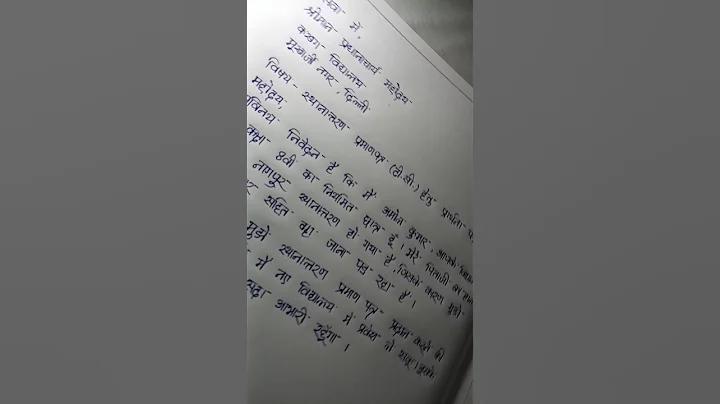 सेवा में,
श्रीमान प्रधानाचार्य महोदय
कखग विद्यालय
मुखर्जी नगर, दिल्ली
विषय - स्थानान्तरण प्रमाणपत्र (टी.सी.) हेतु प्रार्थना
महोदय,
सविनय निवेदन है कि मैं अमोल कुमार, आपके
कक्षा 8वीं का नियमित छात्र हूँ। मेरे पिताजी का
नागपुर स्थानान्तरण हो गया है, जिसके कारण मुझे
सहित वहा जाना पड़ रहा है।
मुझे स्थानान्तरण प्रमाण पत्र प्रदान करने की
मैं नए विद्यालय में प्रवेश ले सकूँ। इसके
सदा आभारी रहूँगा।